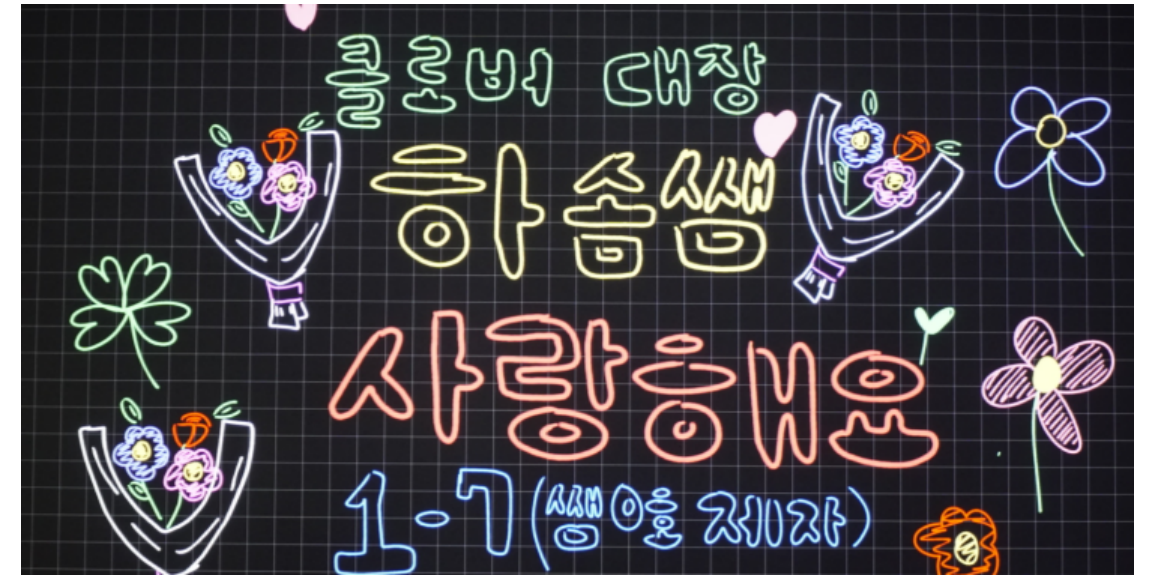 클로버 대장
하솜쌤
사랑해요
1-7(쌤이호 제자)